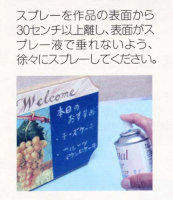 スプレーを作品の表面から
30センチ以上離し、表面がス
プレー液で垂れないよう、
徐々にスプレーしてください。
Welcome
本日の
おすすめ
・チーズケーキ
・フルーツ